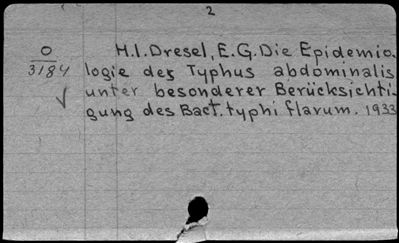 2
O
3184
H.I. Dresel, E.G. Die Epidemio-
logie des Typhus abdominalis
unter besonderer Berücksichti-
gung des Bact. typhi flavum. 1933